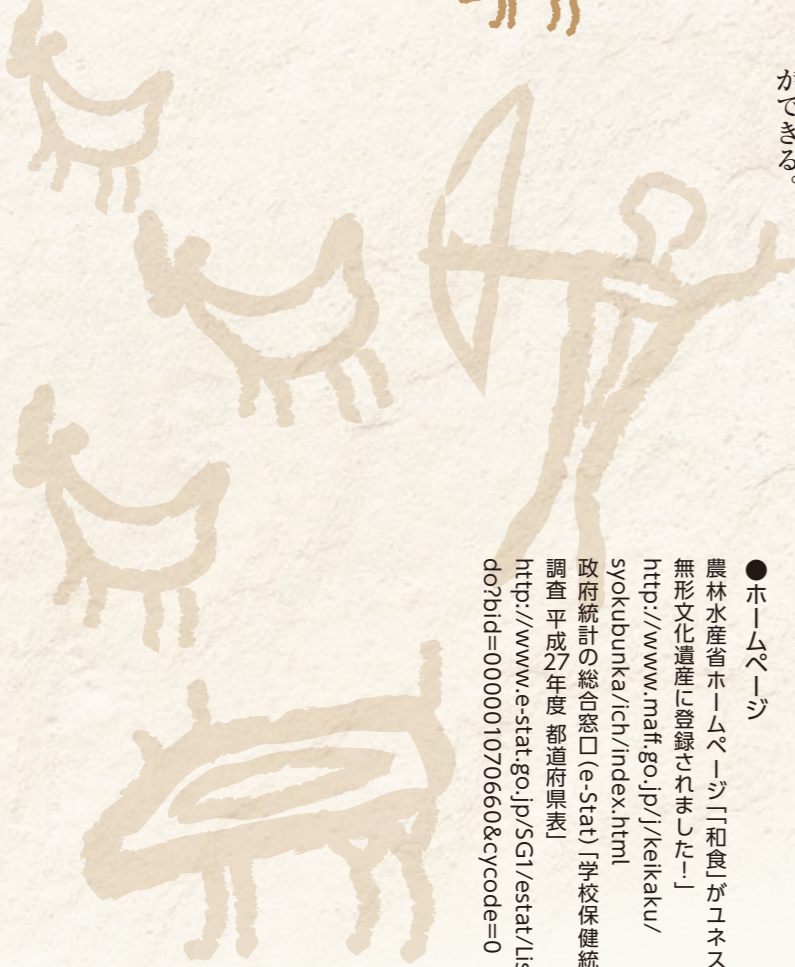 ができる。
●ホームページ
農林水産省ホームページ「「和食」がユネス
無形文化遺産に登録されました！」
http://www.maff.go.jp/j/keikaku/
syokubunka/ich/index.html
政府統計の総合窓口(e-Stat)「学校保健統
調査 平成27年度 都道府県表」
http://www.e-stat.go.jp/SG1/estat/Lis
do?bid=000001070660&cycode=0